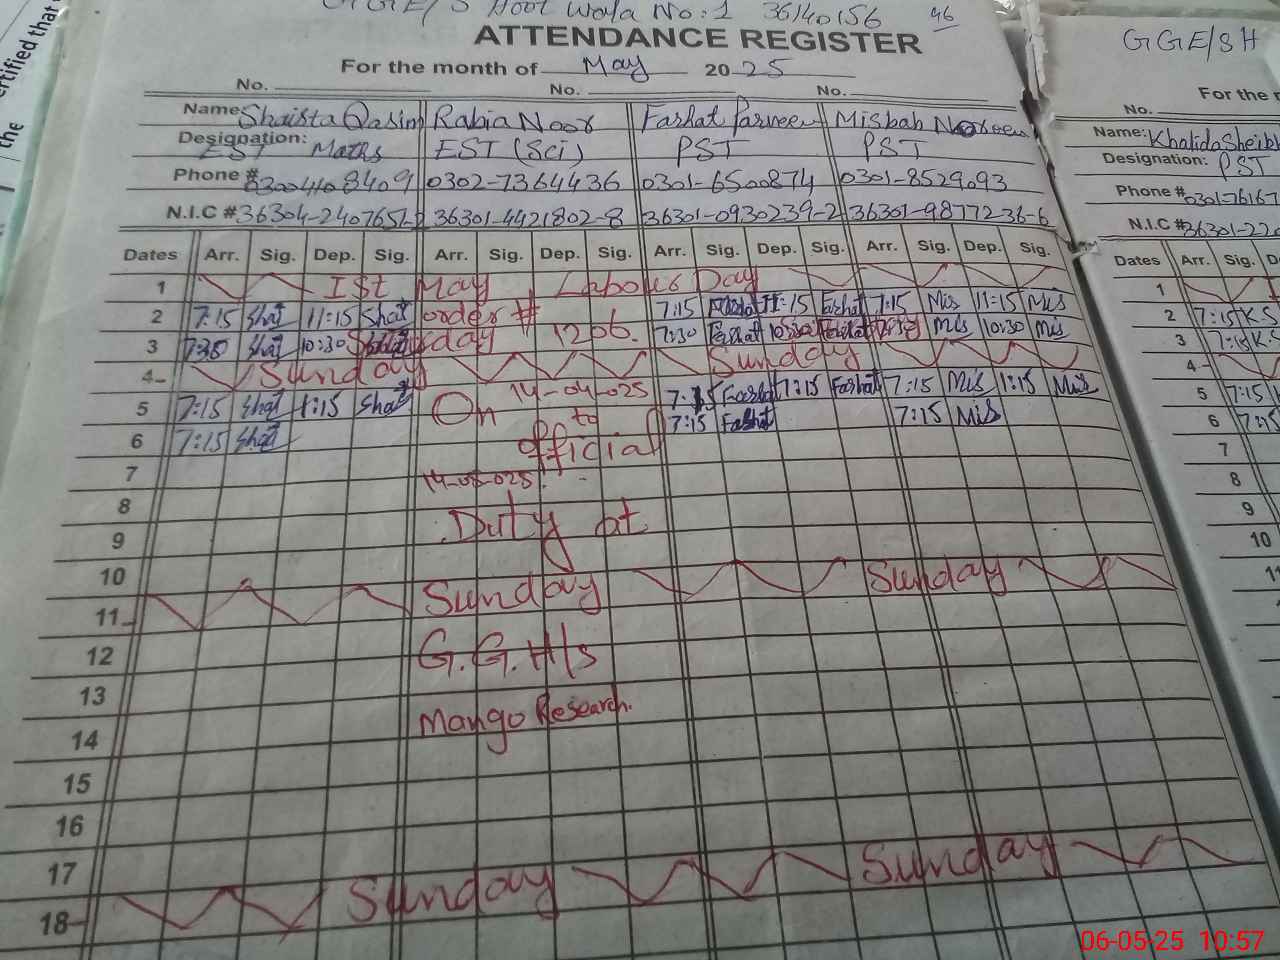 GGE/S Hoot Wala No:1 36140156 46
ATTENDANCE REGISTER
For the month of May 2025
No. No. No.
Name: Shaista Qasim Rabia Noor Farhat Parveen Misbah Noreen
Designation: EST Maths EST (Sci) PST PST
Phone # 03004108409 0302-7364436 0301-6500874 0301-8529093
N.I.C # 36304-2407651-2 36301-4421802-8 36301-0930239-2 36301-9877236-6
Dates Arr. Sig. Dep. Sig. Arr. Sig. Dep. Sig. Arr. Sig. Dep. Sig. Arr. Sig. Dep. Sig.
1 Ist May Labour Day
2 7:15 Shat 11:15 Shat order # 7:15 11:15 Farhat 7:15 Mis 11:15 Mis
3 7:30 Shat 10:30 1206. 7:30 Farhat 10:30 Farhat Mis 10:30 Mis
4 Sunday Sunday
5 7:15 Shat 1:15 Shat On 14-04-025 7:15 Farhat 1:15 Farhat 7:15 Mis 1:15 Mis
6 7:15 Shat to official 7:15 Farhat 7:15 Mis
7 14-05-025
8
9 Duty at
10
11 Sunday Sunday
12 G.G.H/s
13
14 Mango Research.
15
16
17
18 Sunday Sunday
ertified that
the
GGE/SH
For the
No.
Name: Khalida Sheikh
Designation: PST
Phone # 0301-76167
N.I.C # 36301-220
Dates Arr. Sig.
1
2 7:15 K.S
3 7:15 K.S
4
5 7:15
6 7:15
7
8
9
10
11
06-05-25 10:57